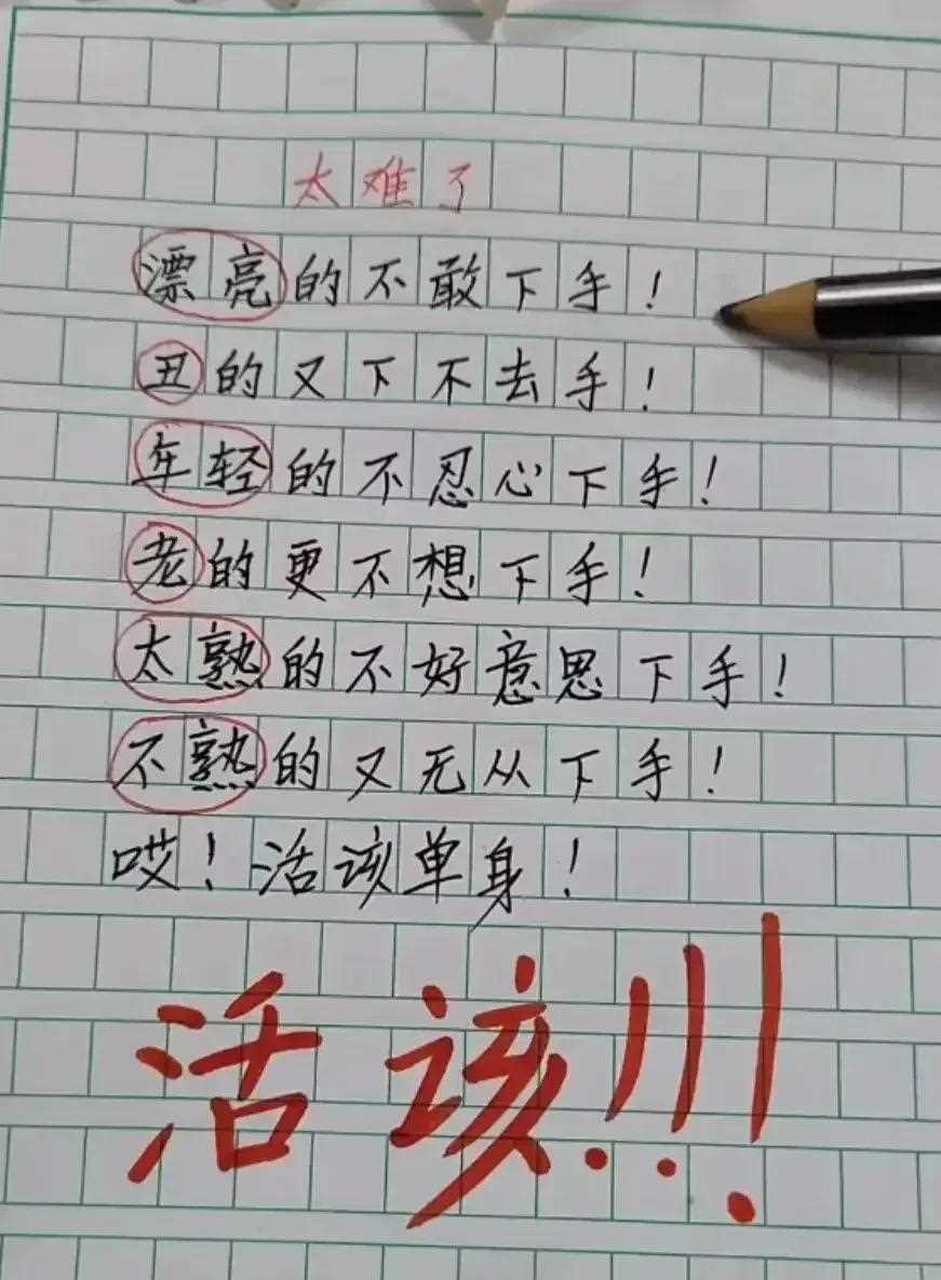 太难了
漂亮的不敢下手！
丑的又下不去手！
年轻的不忍心下手！
老的更不想下手！
太熟的不好意思下手！
不熟的又无从下手！
哎！活该单身！
活该!!!